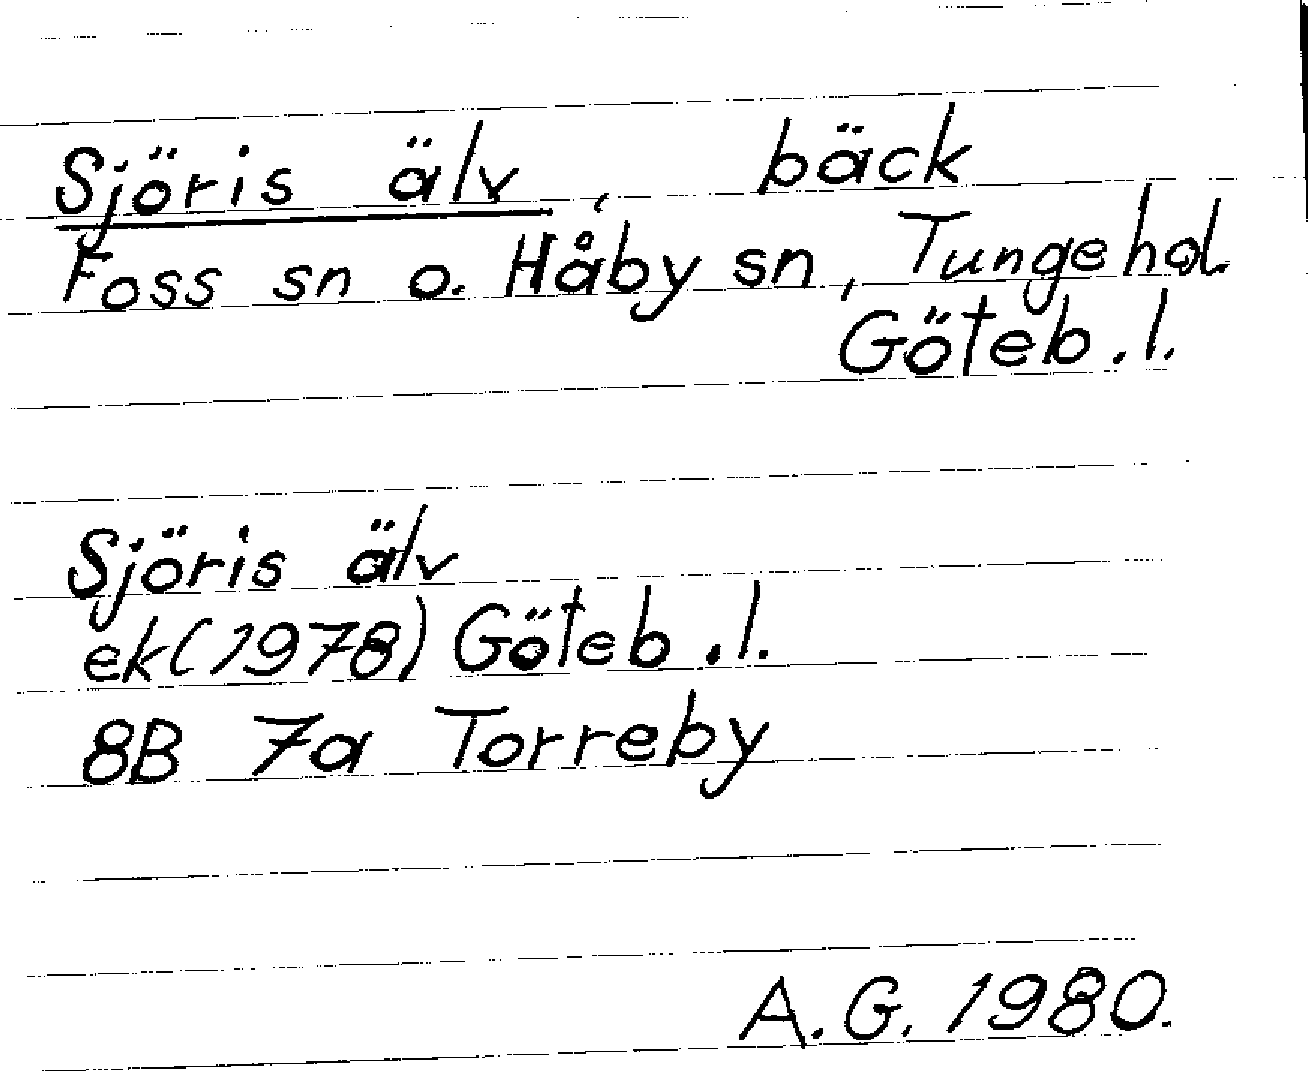 Sjöris älv, bäck
Foss sn o. Håby sn, Tunge hd.
Göteb. l.
Sjöris älv
ek (1978) Göteb. l.
8B 7a Torreby
A. G. 1980.